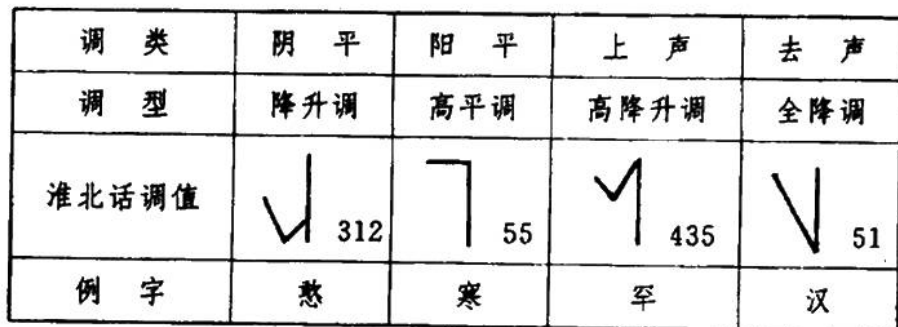 调类 阴平 阳平 上声 去声
调型 降升调 高平调 高降升调 全降调
淮北话调值 312 55 435 51
例字 憨 寒 罕 汉